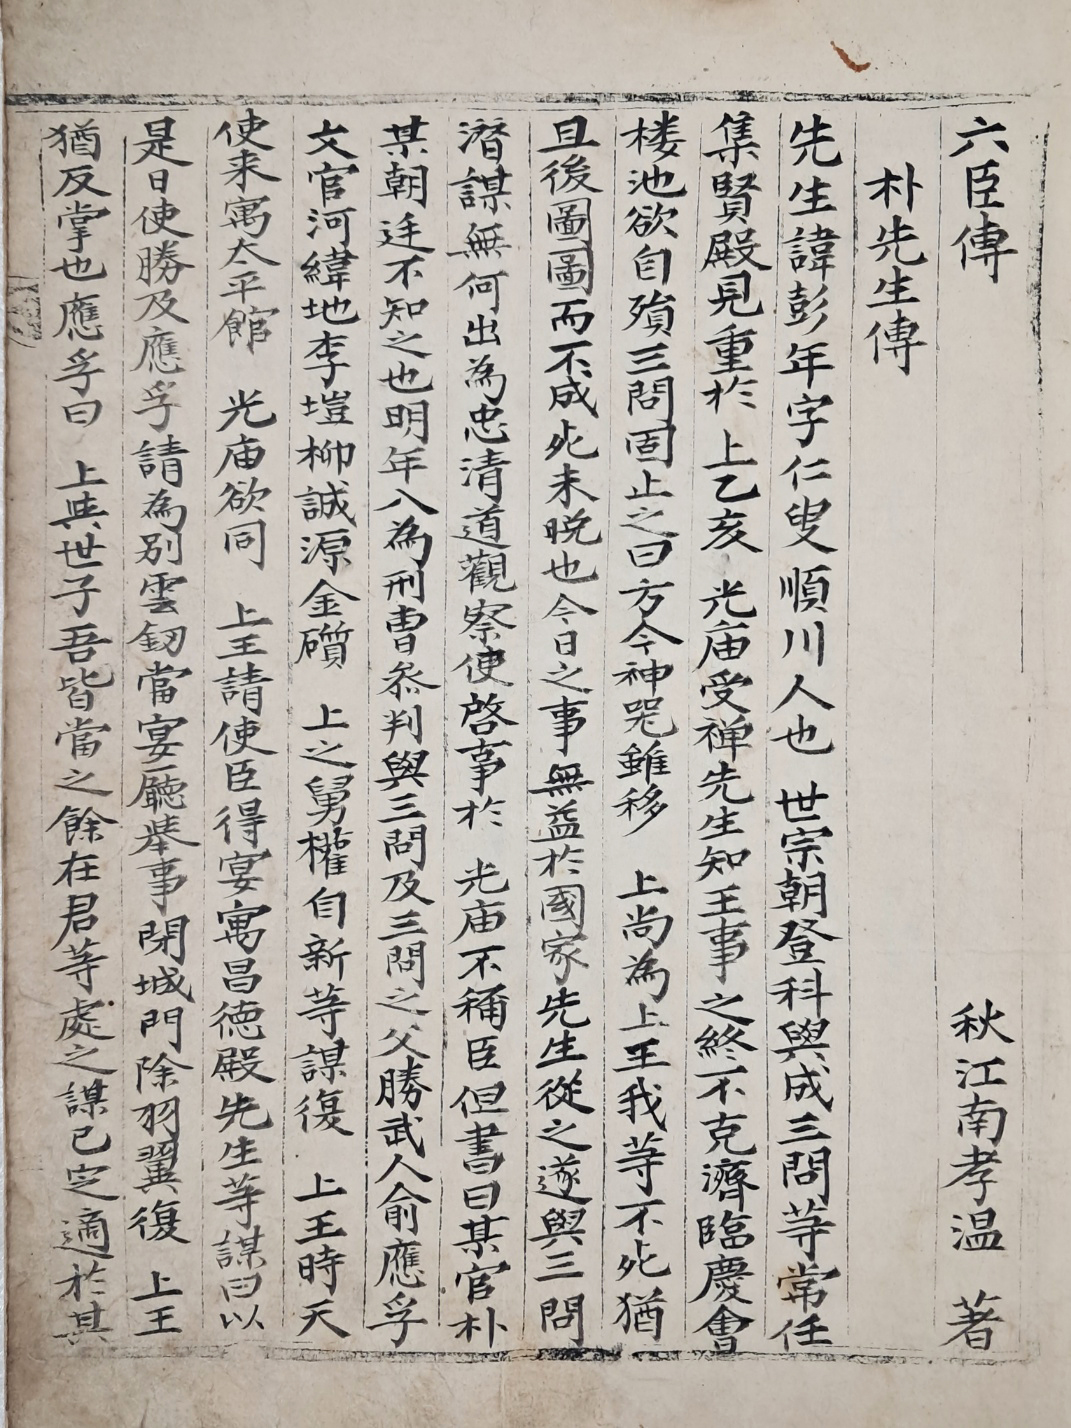 六臣傳 秋江南孝温 著
朴先生傳
先生諱彭年字仁叟順川人也 世宗朝登科與成三問等常任
集賢殿見重於 上乙亥 光庙受禅先生知王事之終不克濟臨慶會
楼池欲自殞三問固止之曰方今神噐雖移 上尚為上王我等不死猶
且後圖圖而不成死未晩也今日之事無益於國家先生從之遂與三問
潛謀無何出為忠清道觀察使啓事於 光庙不稱臣但書曰某官朴
某朝廷不知之也明年入為刑曺叅判與三問及三問之父勝武人俞應孚
文官河緯地李塏柳誠源金礩 上之舅權自新等謀復 上王時天
使来寓太平館 光庙欲同 上王請使臣得宴寓昌德殿先生等謀曰以
是日使勝及應孚請為別雲釼當宴廳举事閉城門除羽翼復 上王
猶反掌也應孚曰 上與世子吾皆當之餘在君等處之謀已定適於其